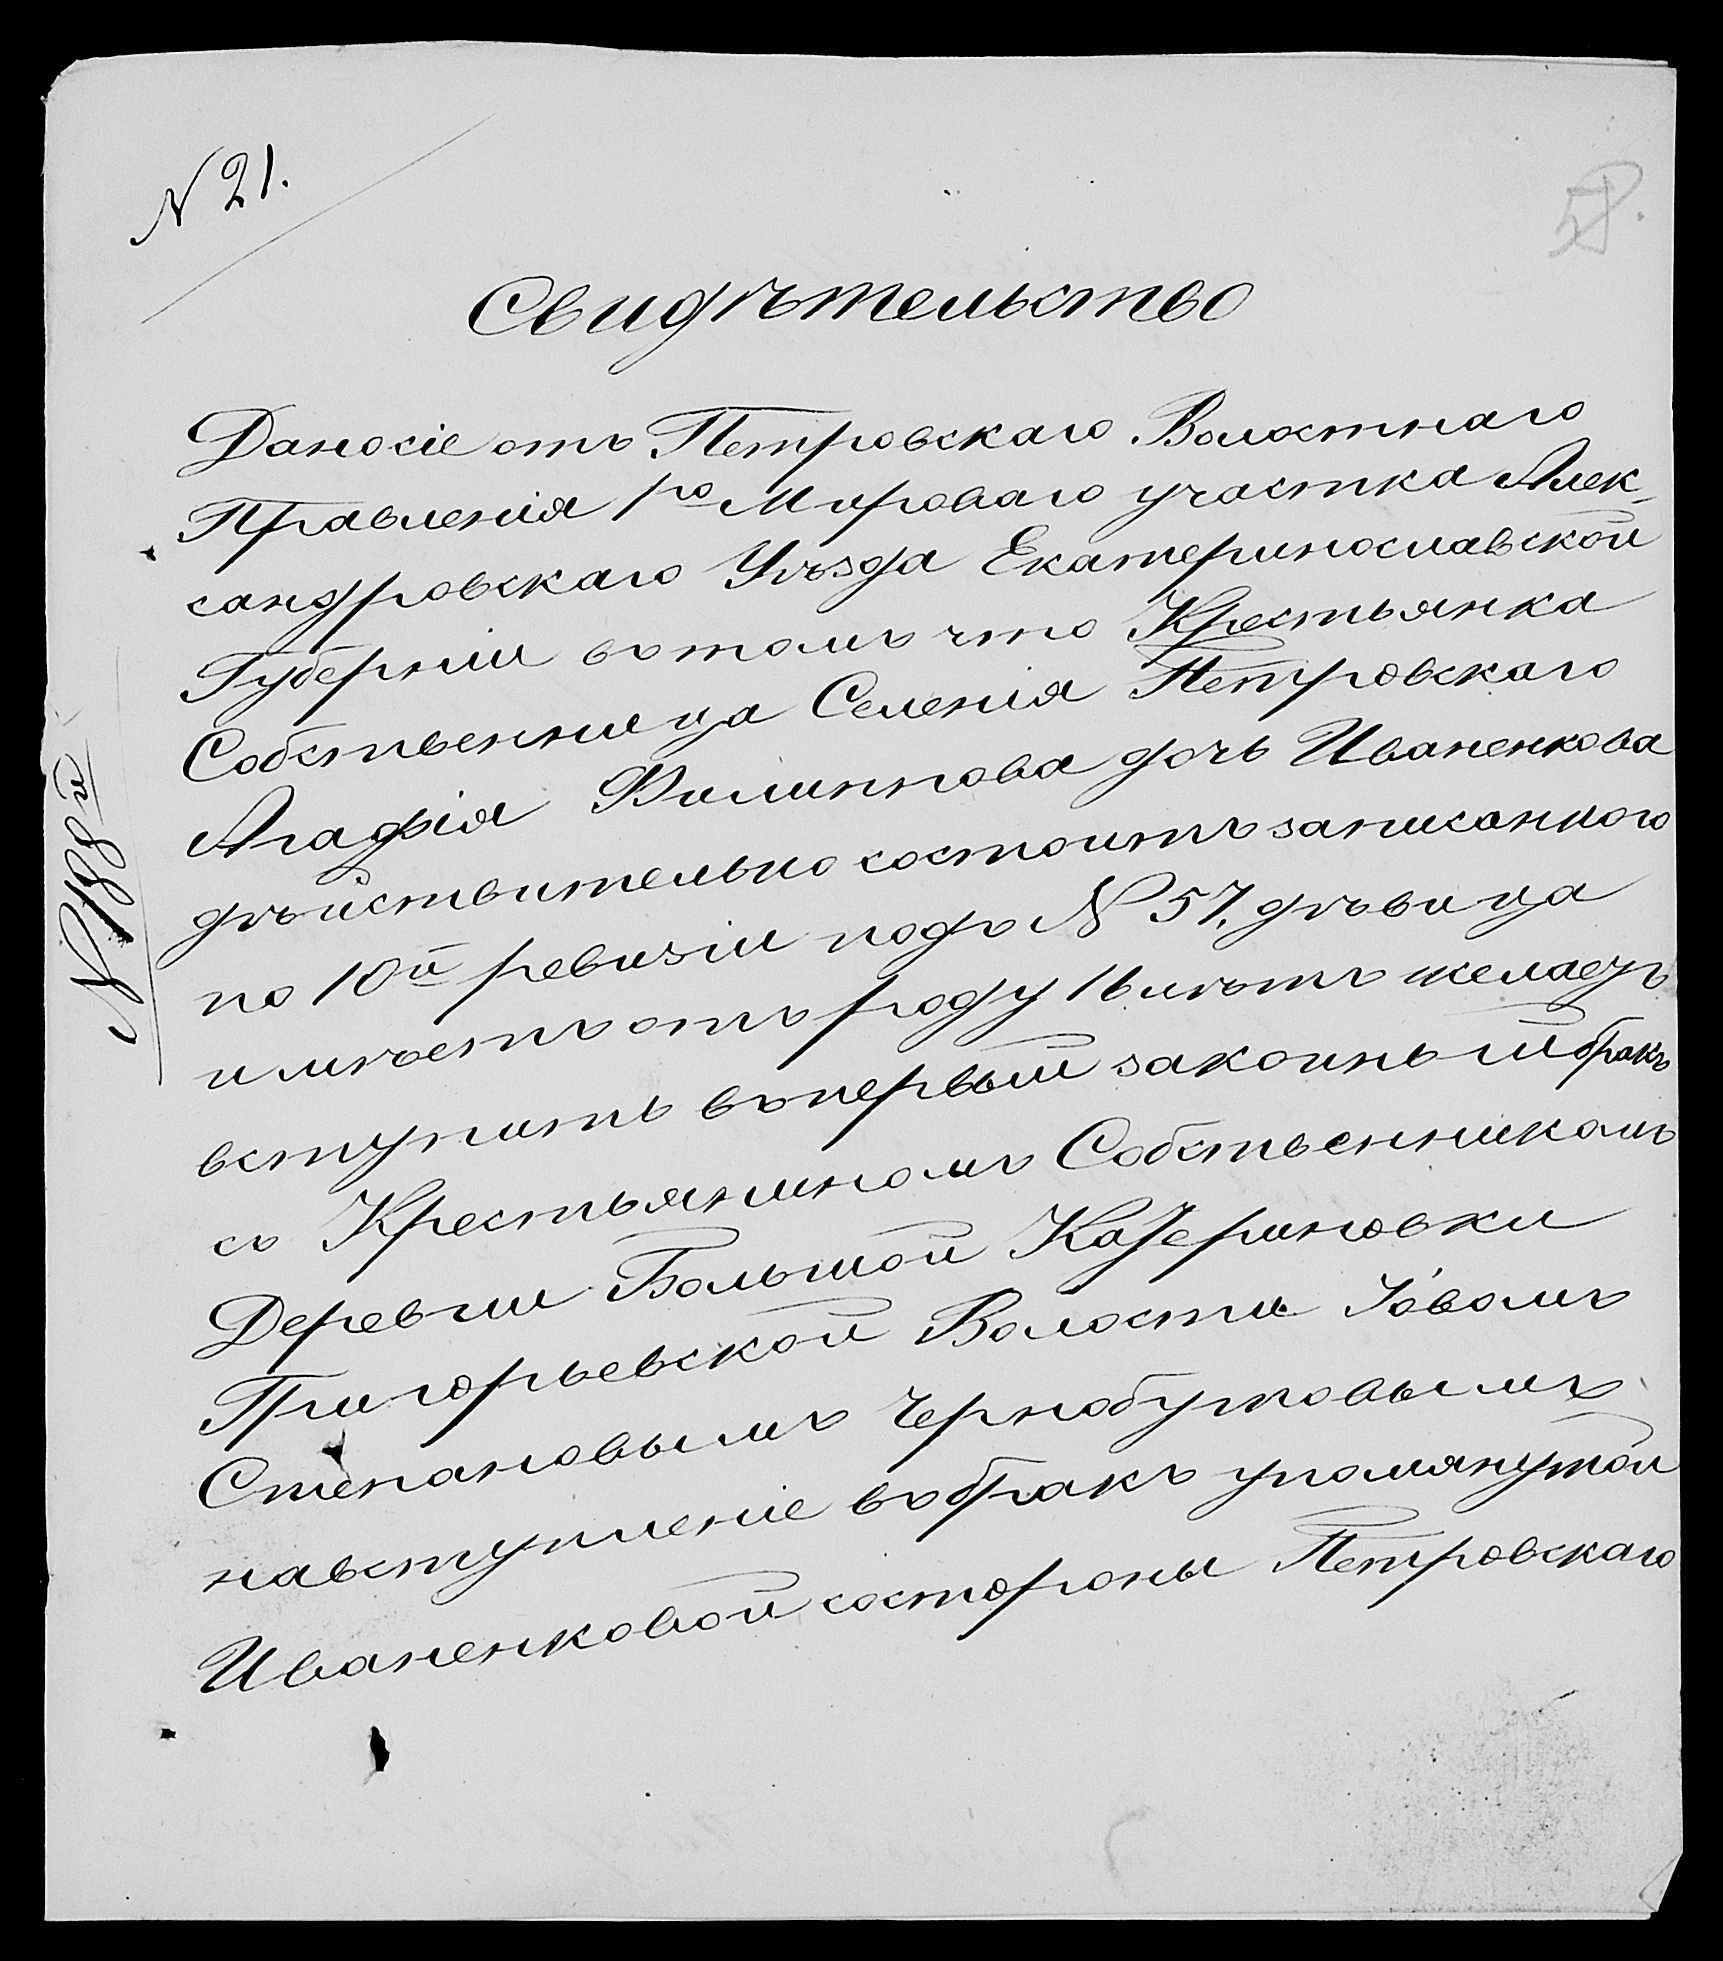 N 21.
Свидѣтельство
Даносіе отъ Петровскаго Волостнаго
Правленія 1го Мироваго участка Алек-
сандровскаго Уѣзда Екатеринославской
Губерніи вътомъ что Крестьянка
Собственница Селенія Петровскаго
Агафія Филиппова дочь Иваненкова
дѣйствительно состоитъ записанною
по 10й ревизіи подъ N 57, дѣвица
имѣетъ отъ роду 16 лѣтъ желаетъ
вступить въпервый законный бракъ
съ Крестьяниномъ Собственникомъ
Деревни Большой Катериновки
Григорьевской Волости Іовомъ
Степановымъ Чернобутовымъ
навступленіе въбракъ упомянутой
Иваненковой состороны Петровскаго
N 188й